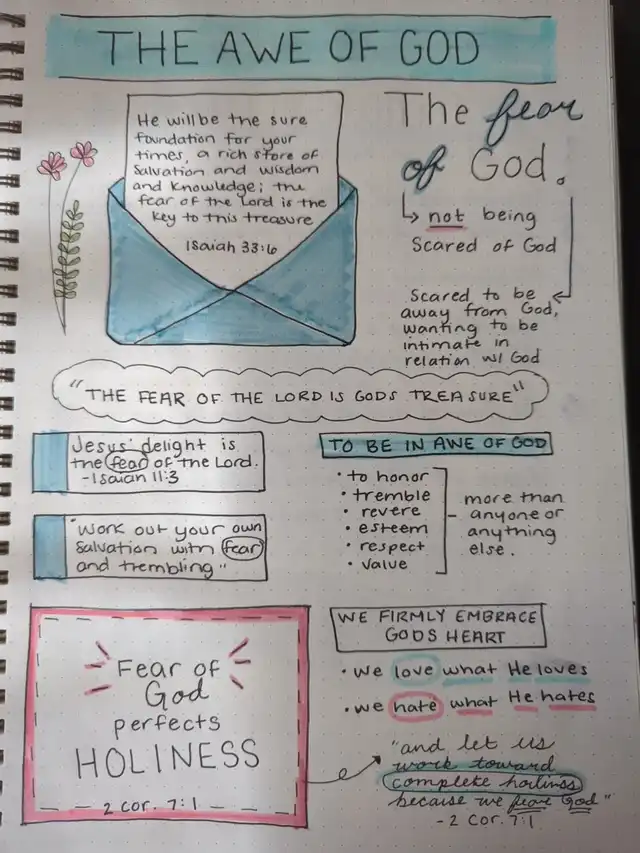 THE AWE OF GOD
He will be the sure
foundation for your
times, a rich store of
Salvation and wisdom
and knowledge; the
fear of the Lord is the
key to this treasure
Isaiah 33:6
The fear
of God.
not being
Scared of God
Scared to be
away from God,
wanting to be
intimate in
relation w/ God
"THE FEAR OF THE LORD IS GODS TREASURE"
Jesus' delight is
the fear of the Lord.
-Isaiah 11:3
"Work out your own
salvation with fear
and trembling"
TO BE IN AWE OF GOD
• to honor
• tremble
• revere
• esteem
• respect
• value
more than
anyone or
anything
else.
WE FIRMLY EMBRACE
GODS HEART
• we love what He loves
• we hate what He hates
Fear of
God
perfects
HOLINESS
2 Cor. 7:1
"and let us
work toward
complete holiness
because we fear God"
- 2 Cor. 7:1